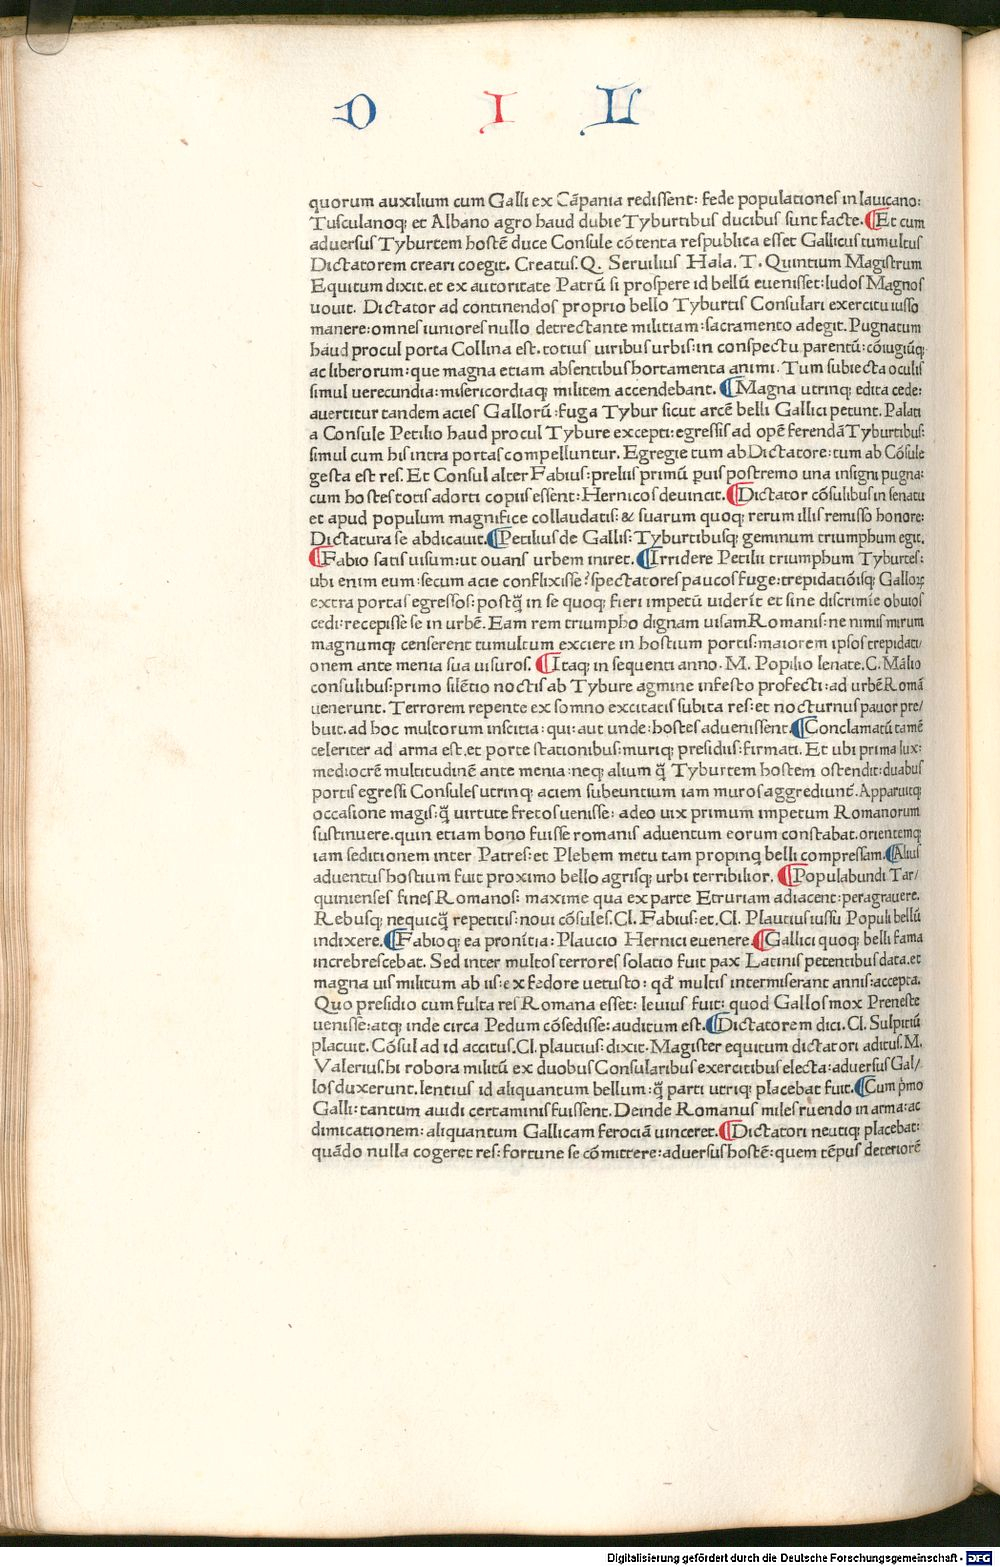 D I L
quorum auxilium cum Galli ex Cãpania redissent: fede populationes in lauicano:
Tusculanoq; et Albano agro haud dubie Tyburtibus ducibus sunt facte. ¶Et cum
adversus Tyburtem hostẽ duce Consule cõtenta respublica esset Gallicus tumultus
Dictatorem creari coegit. Creatus. Q. Seruilius Hala. T. Quintium Magistrum
Equitum dixit. et ex autoritate Patrũ si prospere id bellũ euenisset: ludos Magnos
uouit. Dictator ad continendos proprio bello Tyburtis Consulari exercitu iusso
manere: omnes iuniores nullo detrectante militiam: sacramento adegit. Pugnatum
haud procul porta Collina est. totius uiribus urbis: in conspectu parentũ: cõiugiũq;
ac liberorum: que magna etiam absentibus hortamenta animi. Tum subiecta oculis
simul uerecundia: misericordiaq; militem accendebant. ¶Magna utrinq; edita cede:
avertitur tandem acies Gallorũ: fuga Tybur sicut arcẽ belli Gallici petunt. Palati
a Consule Petilio haud procul Tybure excepti: egressis ad opẽ ferendã Tyburtibus:
simul cum his intra portas compelluntur. Egregie tum ab Dictatore: tum ab Cõsule
gesta est res. Et Consul alter Fabius: preliis primũ ꝑuis postremo una insigni pugna:
cum hostes totis adorti copiis essent: Hernicos deuincit. ¶Dictator cõsulibus in senatu
et apud populum magnifice collaudatis: & suarum quoq; rerum illis remisso honore:
Dictatura se abdicauit. ¶Petilius de Gallis: Tyburtibusq; geminum triumphum egit.
¶Fabio satis uisum: ut ovans urbem iniret. ¶Irridere Petilii triumphum Tyburtes:
ubi enim eum: secum acie conflixisse? spectatores paucos fuge: trepidatiõisq; Galloꝝ
extra portas egressos: postq̃ in se quoq; fieri impetũ uiderĩt et sine discrimĩe obuios
cedi: recepisse se in urbẽ. Eam rem triumpho dignam uisam Romanis: ne nimis mirum
magnumq; censerent tumultum exciere in hostium portis: maiorem ipsos trepidati/
onem ante menia sua uisuros. ¶Itaq; in sequenti anno. M. Popilio lenate. C. Mãlio
consulibus: primo silẽtio noctis ab Tybure agmine infesto profecti: ad urbẽ Romã
uenerunt. Terrorem repente ex somno excitatis subita res: et nocturnus pavor pre/
buit. ad hoc multorum inscitia: qui: aut unde: hostes advenissent. ¶Conclamatũ tamẽ
celeriter ad arma est. et porte stationibus: muriq; presidiis: firmati. Et ubi prima lux:
mediocrẽ multitudinẽ ante menia: neq; alium q̃ Tyburtem hostem ostendit: duabus
portis egressi Consules utrinq; aciem subeuntium iam muros aggrediunt̃. Apparuitq;
occasione magis: q̃ uirtute fretos uenisse: adeo uix primum impetum Romanorum
sustinuere. quin etiam bono fuisse romanis adventum eorum constabat. orientemq;
iam seditionem inter Patres: et Plebem metu tam propinq belli compressam. ¶Alius
adventus hostium fuit proximo bello agrisq; urbi terribilior. ¶Populabundi Tar/
quinienses fines Romanos: maxime qua ex parte Etruriam adiacent: peragravere.
Rebusq; nequicq̃ repetitis: noui cõsules. Cl. Fabius: et. Cl. Plautius iussu Populi bellũ
indixere. ¶Fabioq; ea prouĩtia: Plaucio Hernici evenere. ¶Gallici quoq; belli fama
increbrescebat. Sed inter multos terrores solatio fuit pax Latinis petentibus data. et
magna uis militum ab iis: ex fędore vetusto: qđ multis intermiserant annis: accepta.
Quo presidio cum fulta res Romana esset: leuius fuit: quod Gallos mox Preneste
uenisse: atq; inde circa Pedum cõsedisse: auditum est. ¶Dictatorem dici. Cl. Sulpitiũ
placuit. Cõsul ad id accitus. Cl. plautius: dixit. Magister equitum dictatori aditus. M.
Valerius. hi robora militũ ex duobus Consularibus exercitibus electa: adversus Gal/
los duxerunt. lentius id aliquantum bellum: q̃ parti utriq; placebat fuit. ¶Cum p̃mo
Galli: tantum auidi certaminis fuissent. Deinde Romanus miles ruendo in arma: ac
dimicationem: aliquantum Gallicam ferociã uinceret. ¶Dictatori neutiq; placebat:
quãdo nulla cogeret res: fortune se cõmittere: adversus hostẽ: quem tẽpus deteriorẽ
Digitalisierung gefördert durch die Deutsche Forschungsgemeinschaft - DFG